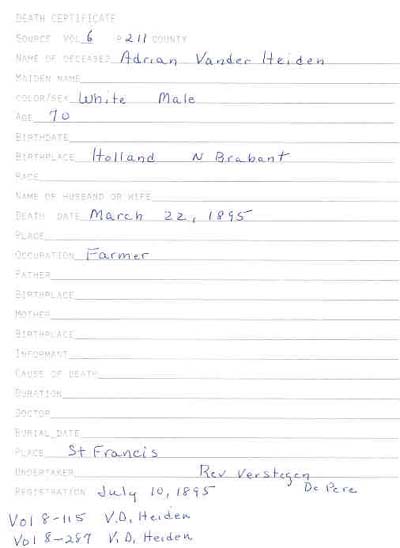 DEATH CERTIFICATE
SOURCE VOL 6 P 211 COUNTY
NAME OF DECEASED Adrian Vander Heiden
MAIDEN NAME
COLOR/SEX White Male
AGE 70
BIRTHDATE
BIRTHPLACE Holland N Brabant
RACE
NAME OF HUSBAND OR WIFE
DEATH DATE March 22, 1895
PLACE
OCCUPATION Farmer
FATHER
BIRTHPLACE
MOTHER
BIRTHPLACE
INFORMANT
CAUSE OF DEATH
DURATION
DOCTOR
BURIAL DATE
PLACE St Francis
UNDERTAKER Rev Verstegen
REGISTRATION July 10, 1895 De Pere
Vol 8-115 V.D. Heiden
Vol 8-287 V.D. Heiden